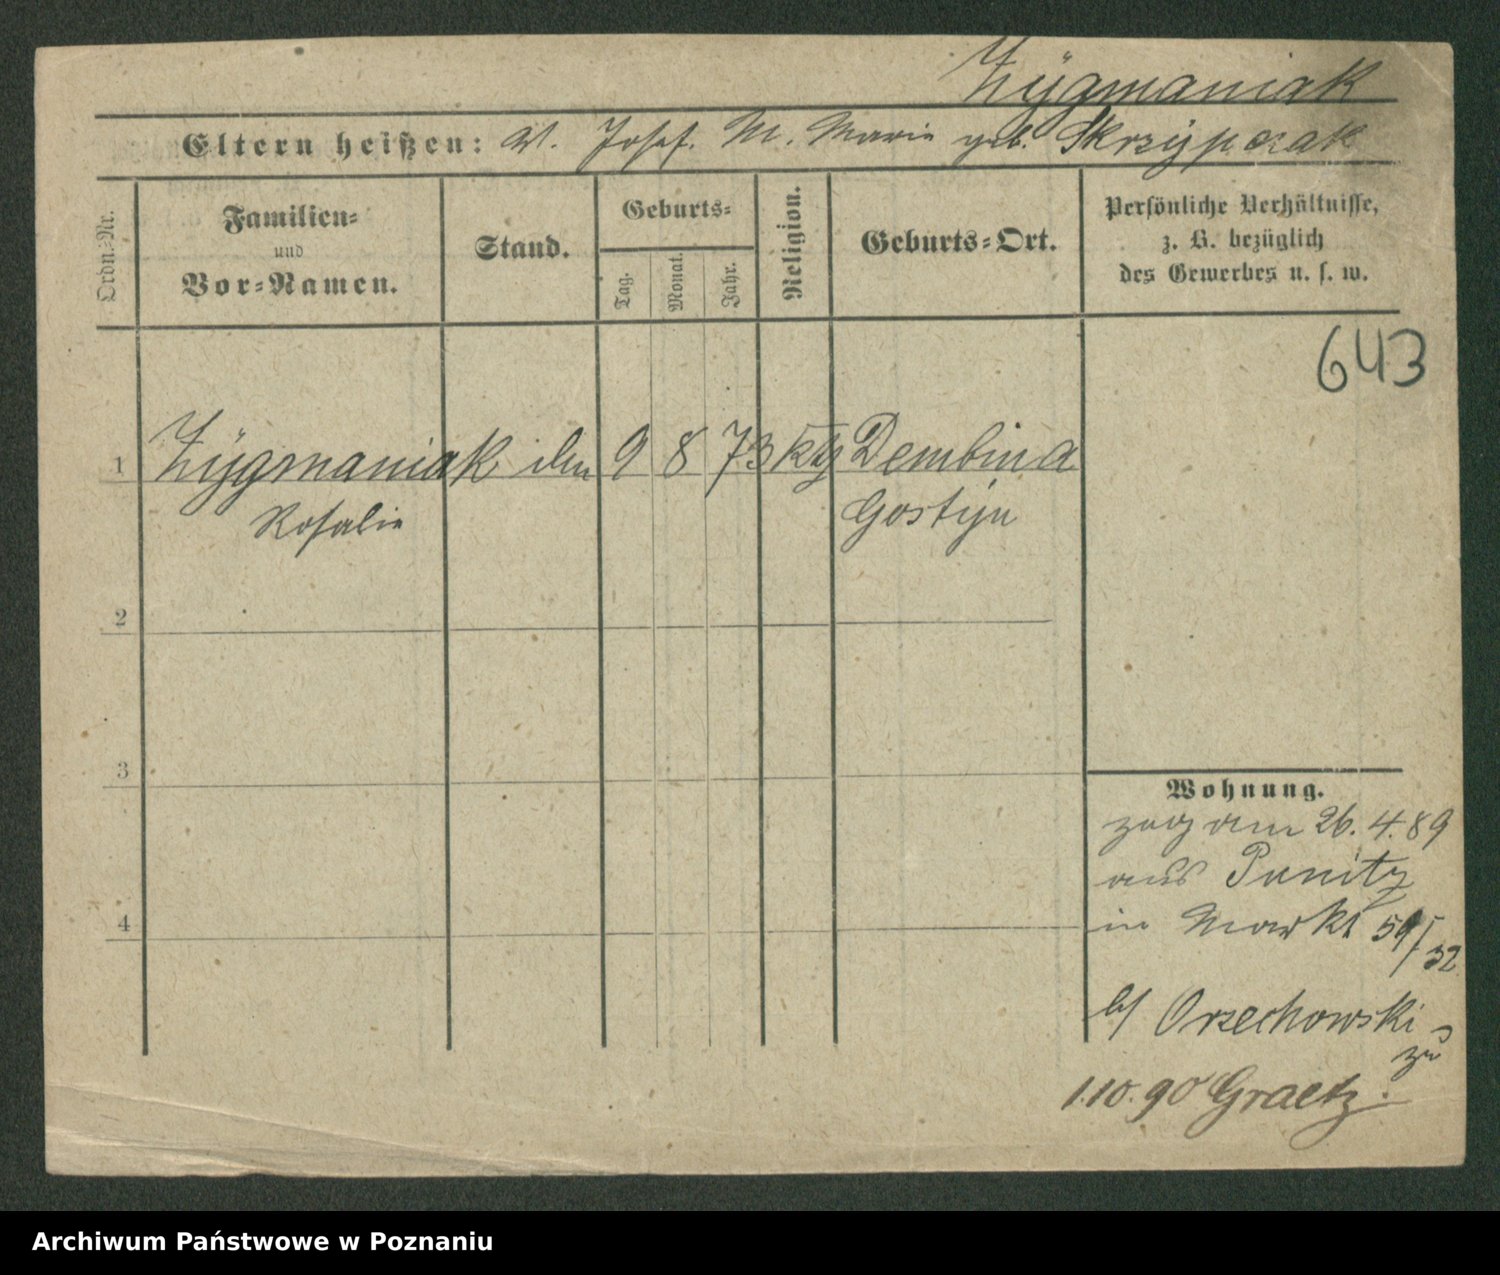 Zÿgmaniak
Eltern heißen: V. Josef. M. Marie geb. Skrzÿpczak
Ordn.-Nr.
Familien-
und
Vor-Namen.
Stand.
Geburts-
Tag.
Monat.
Jahr.
Religion.
Geburts-Ort.
Persönliche Verhältnisse,
z. B. bezüglich
des Gewerbes u. s. w.
643
1 Zÿgmaniak 9 8 73 kth Dembina
Rosalie Gostÿn
2
3
4
Wohnung.
zog am 26.4.89
aus Punitz
in Markt 59/32
b/ Orzechowski
zu
1.10.90 Graetz.
Archiwum Państwowe w Poznaniu